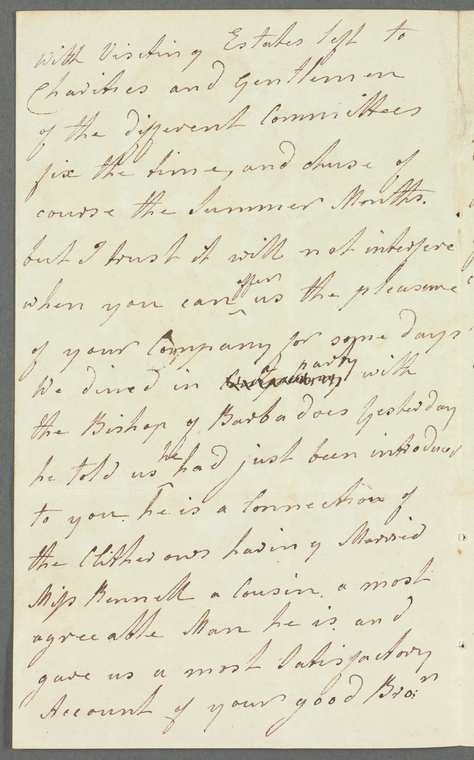 with Visiting Estates left to
Charities and Gentlemen
of the different Committees
fix the time, and chuse of
course the Summer Months.
but I trust it will not interfere
when you can offer us the pleasure
of your Company for some days
We dined in a party with
the Bishop of Barbadoes Yesterday
he told us he had just been introduced
to you. he is a Connection of
the Clitherows having Married
Miss Pennell a Cousin. a most
agreeable Man he is and
gave us a most Satisfactory
Account of your good Bror